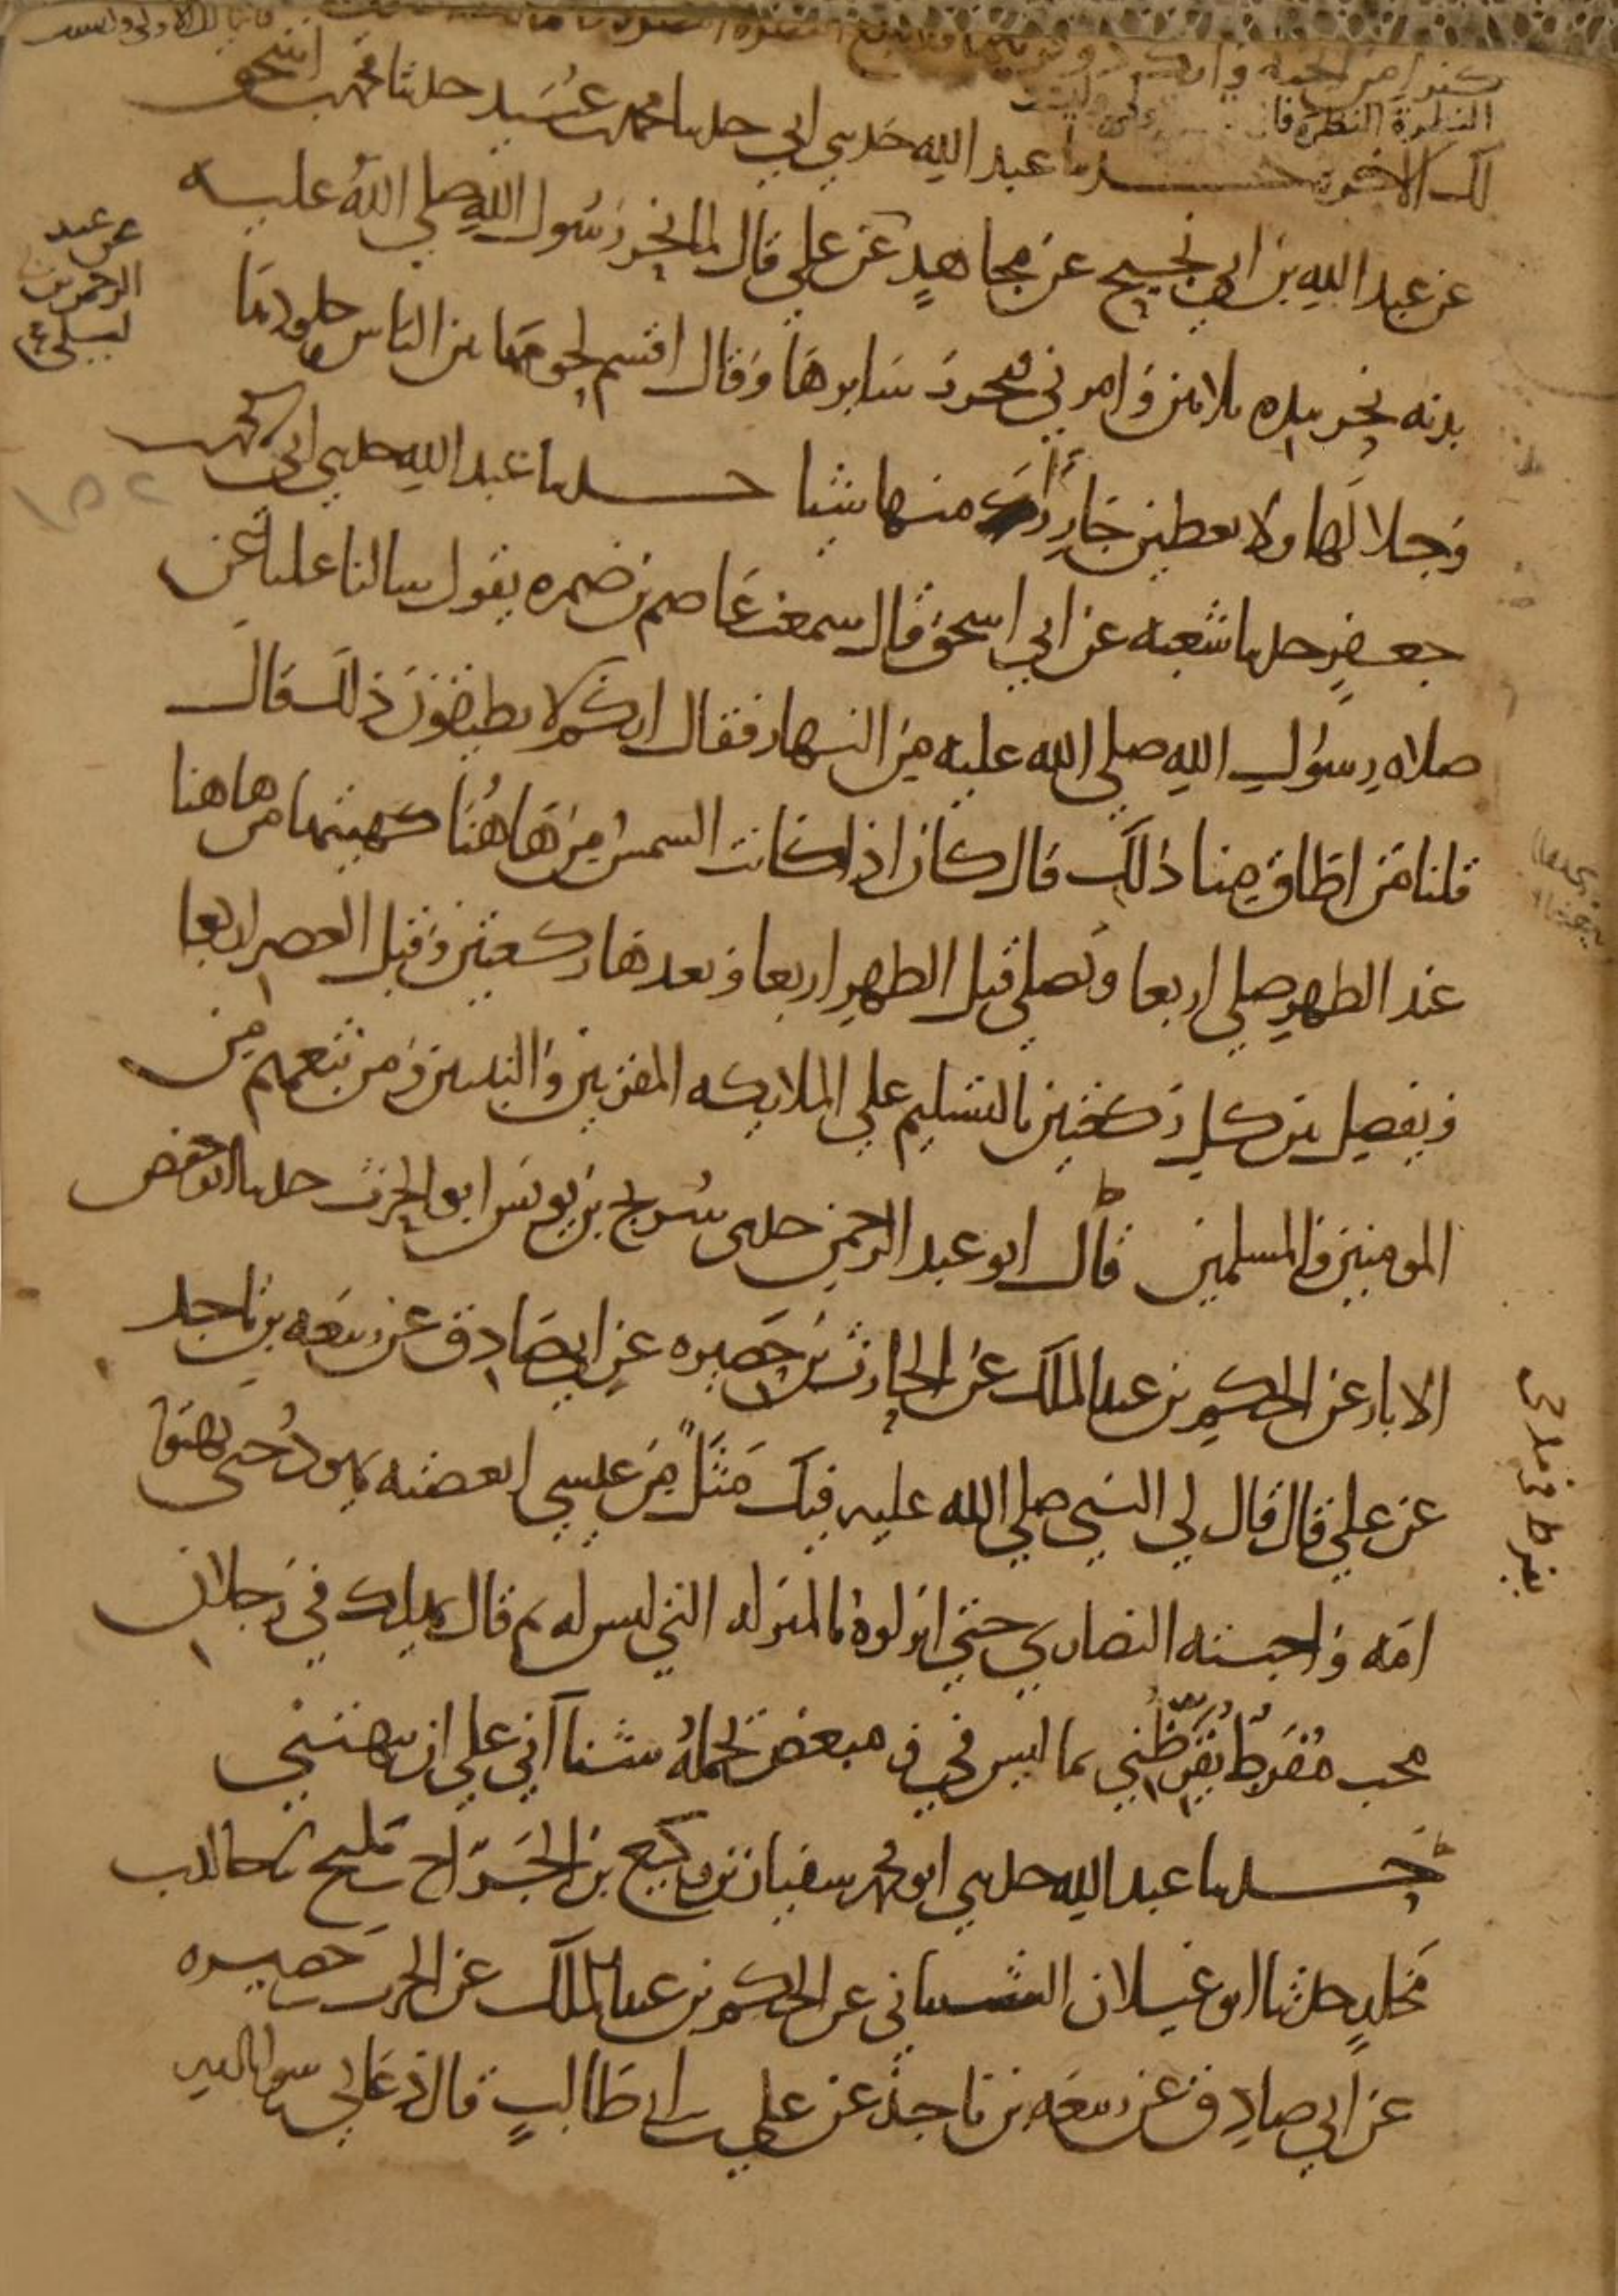 كنزا من الجنة وانك ذو قرنيها فلا تتبع النظرة النظرة فانما لك الاولى وليست
لك الاخرة حدثنا عبد الله حدثني ابي حدثنا محمد بن عبيد حدثنا محمد بن اسحق
عن عبد الله بن ابي نجيح عن مجاهدٍ عن علي قال لما نحر رسول الله صلى الله عليه
عن عبد
الرحمن بن
ليلى
بدنه نحر بيده ثلاثين وامرني فنحرت سايرها وقال اقسم لحومها بين الناس جلودها
وجلالها ولا تعطين جازرا منها شيا حدثنا عبد الله حدثني ابي محمد بن
١٥٢
جعفرٍ حدثنا شعبه عن ابي اسحق قال سمعت عاصم بن ضمره يقول سالنا عليا عن
صلاه رسول الله صلى الله عليه من النهار فقال انكم لا تطيقون ذلك قال
قلنا من اطاق منا ذلك قال كان اذا كانت الشمس من هاهنا كهيئتها من هاهنا
عند الظهر صلى اربعا ويصلي قبل الظهر اربعا وبعدها ركعتين وقبل العصر اربعا
ويفصل بين كل ركعتين بالتسليم على الملايكه المقربين والنبيين ومن تبعهم من
المومنين والمسلمين قال ابو عبد الرحمن حدثني سريج بن يونس ابو الحرث حدثنا ابو حفص
الابار عن الحكم بن عبد الملك عن الحارث بن حصيره عن ابي صادق عن ربيعه بن ناجد
عن علي قال قال لي النبي صلى الله عليه فيك مثلٌ من عيسى ابغضته يهود حتى بهتوا
امه واحبته النصارى حتى انزلوه بالمنزله التي ليس له ثم قال يهلك في رجلان
محب مفرط يقرظني بما ليس في ومبغض يحمله شنآني على ان يبهتني
حدثنا عبد الله حدثني ابو محمد سفيان بن وكيع بن الجراح بن مليح نا خالد بن
مخلدٍ حدثنا ابو غيلان الشيباني عن الحكم بن عبد الملك عن الحرث بن حصيره
عن ابي صادق عن ربيعه بن ناجد عن علي بن ابي طالبٍ قال دعاني رسول الله